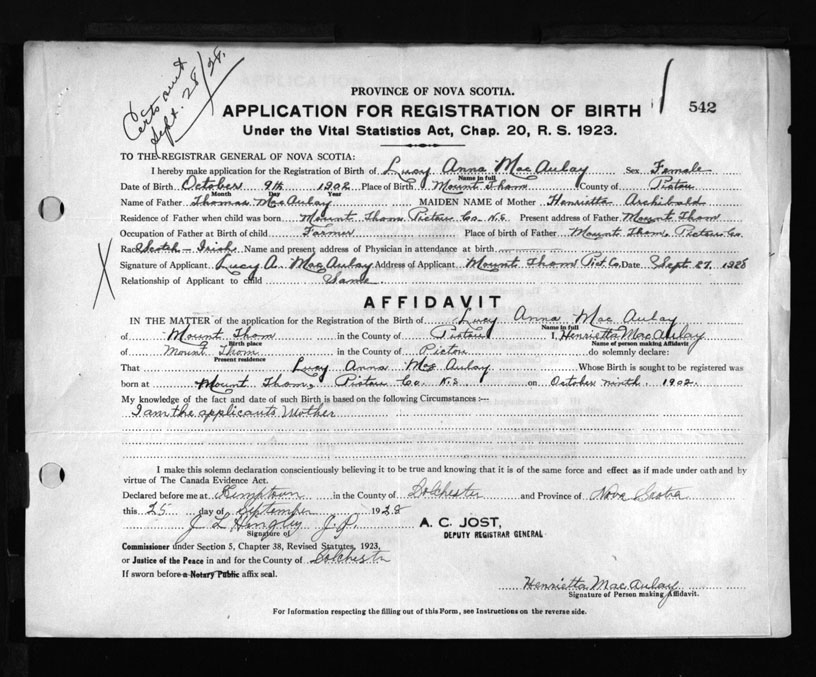 Certs sent
Sept. 28/28.
PROVINCE OF NOVA SCOTIA.
APPLICATION FOR REGISTRATION OF BIRTH
542
Under the Vital Statistics Act, Chap. 20, R. S. 1923.
TO THE REGISTRAR GENERAL OF NOVA SCOTIA:
I hereby make application for the Registration of Birth of Lucy Anna MacAulay Sex Female
Name in full
Date of Birth October 9th 1902 Place of Birth Mount Thom County of Pictou
Month Day Year
Name of Father Thomas MacAulay MAIDEN NAME of Mother Henrietta Archibald
Residence of Father when child was born Mount Thom Pictou Co. N.S. Present address of Father Mount Thom
Occupation of Father at Birth of child Farmer Place of birth of Father Mount Thom, Pictou Co.
Race Scotch - Irish Name and present address of Physician in attendance at birth
Signature of Applicant Lucy A. MacAulay Address of Applicant Mount Thom Pict. Co. Date Sept. 27, 1928
Relationship of Applicant to child Same
AFFIDAVIT
IN THE MATTER of the application for the Registration of the Birth of Lucy Anna MacAulay
Name in full
of Mount Thom in the County of Pictou I, Henrietta MacAulay
Birth place Name of person making Affidavit
of Mount Thom in the County of Pictou do solemnly declare:
Present residence
That Lucy Anna MacAulay Whose Birth is sought to be registered was
born at Mount Thom, Pictou Co. N.S. on October ninth, 1902.
My knowledge of the fact and date of such Birth is based on the following Circumstances :—
I am the applicants Mother
I make this solemn declaration conscientiously believing it to be true and knowing that it is of the same force and effect as if made under oath and by
virtue of The Canada Evidence Act.
Declared before me at Kemptown in the County of Colchester and Province of Nova Scotia
this 25 day of September 1928
J L Hingley J.P.
Signature of
A. C. JOST,
DEPUTY REGISTRAR GENERAL
Commissioner under Section 5, Chapter 38, Revised Statutes, 1923,
or Justice of the Peace in and for the County of Colchester
If sworn before a Notary Public affix seal.
Henrietta MacAulay
Signature of Person making Affidavit.
For Information respecting the filling out of this Form, see Instructions on the reverse side.